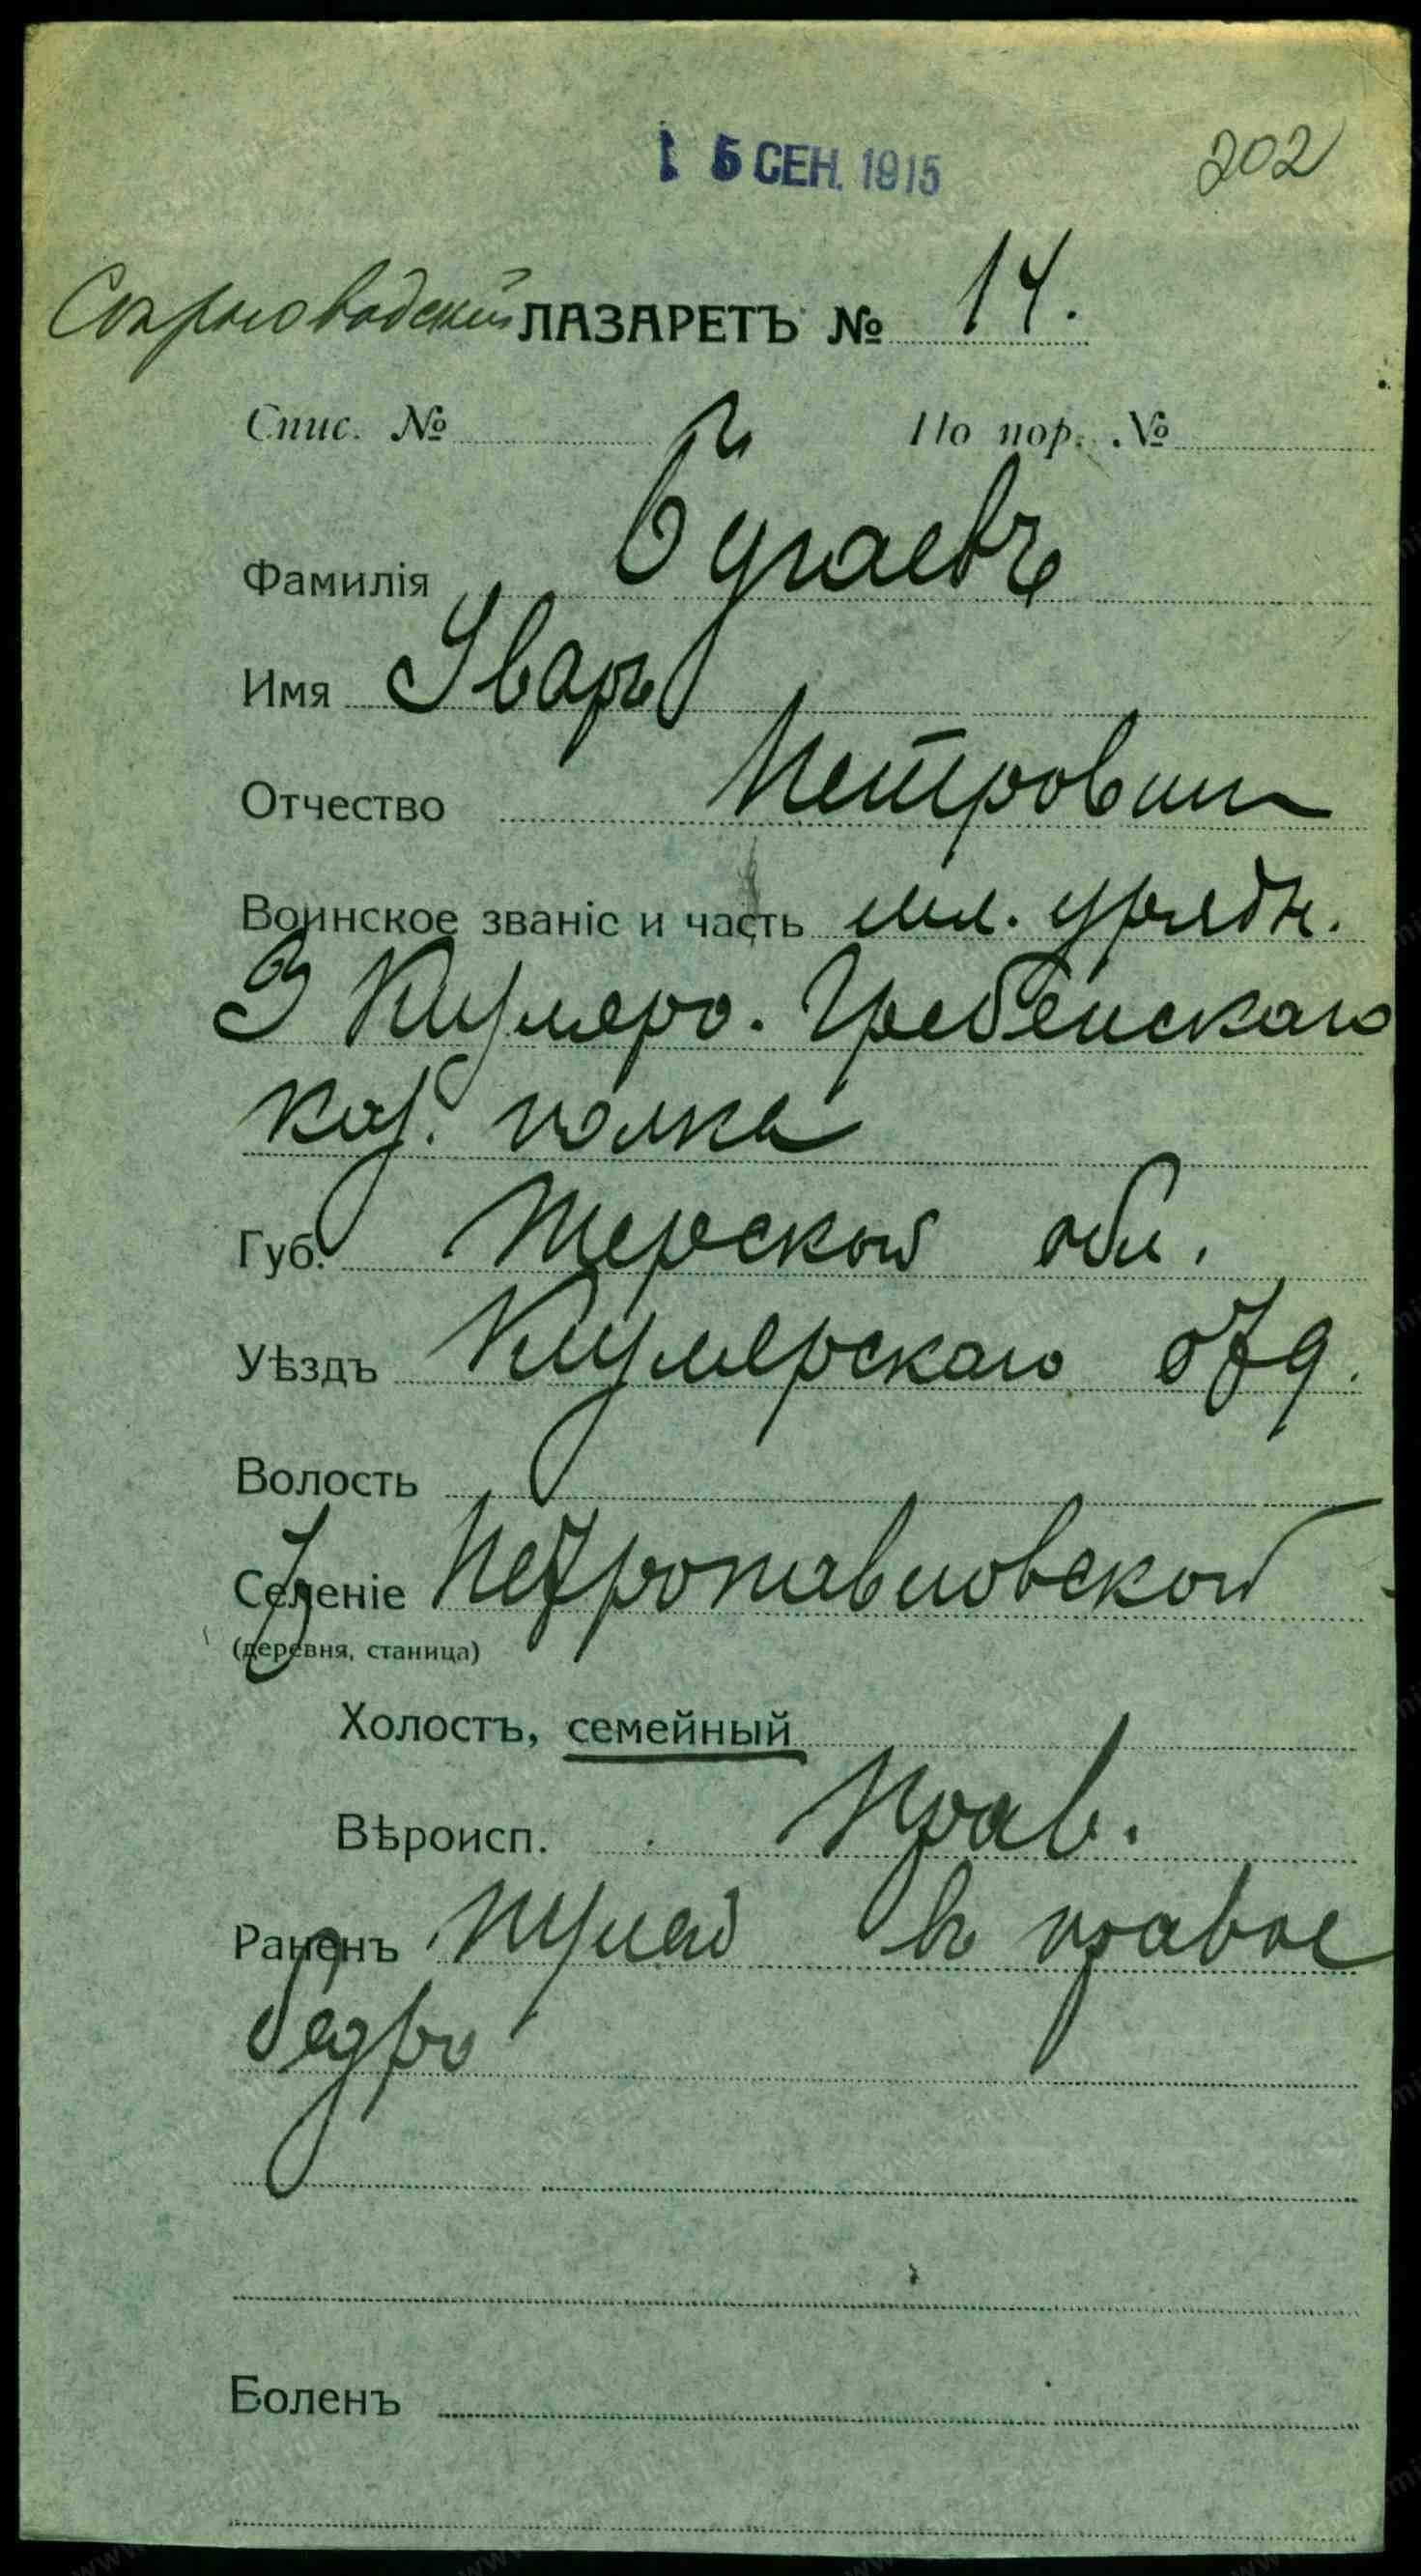 15 СЕН. 1915
202
ЛАЗАРЕТЪ № 14.
Спис. № По пор. №
Фамилія Бугаевъ
Имя Уваръ
Отчество Петровичъ
Воинское званіе и часть мл. урядн.
3 Кизляро. Гребенскаго
каз. полка
Губ. Терской обл.
Уѣздъ Кизлярскаго отд.
Волость
Селеніе Петропавловской
(деревня, станица)
Холостъ, семейный
Вѣроисп. Прав.
Раненъ пулей въ правое
бедро
Боленъ